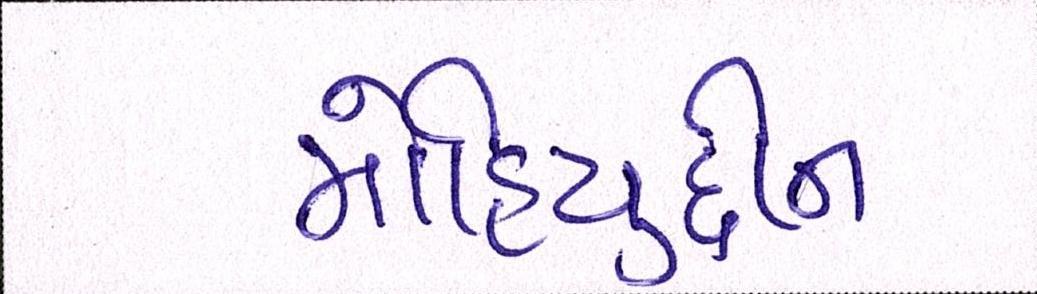 મોહિયુદ્દીન